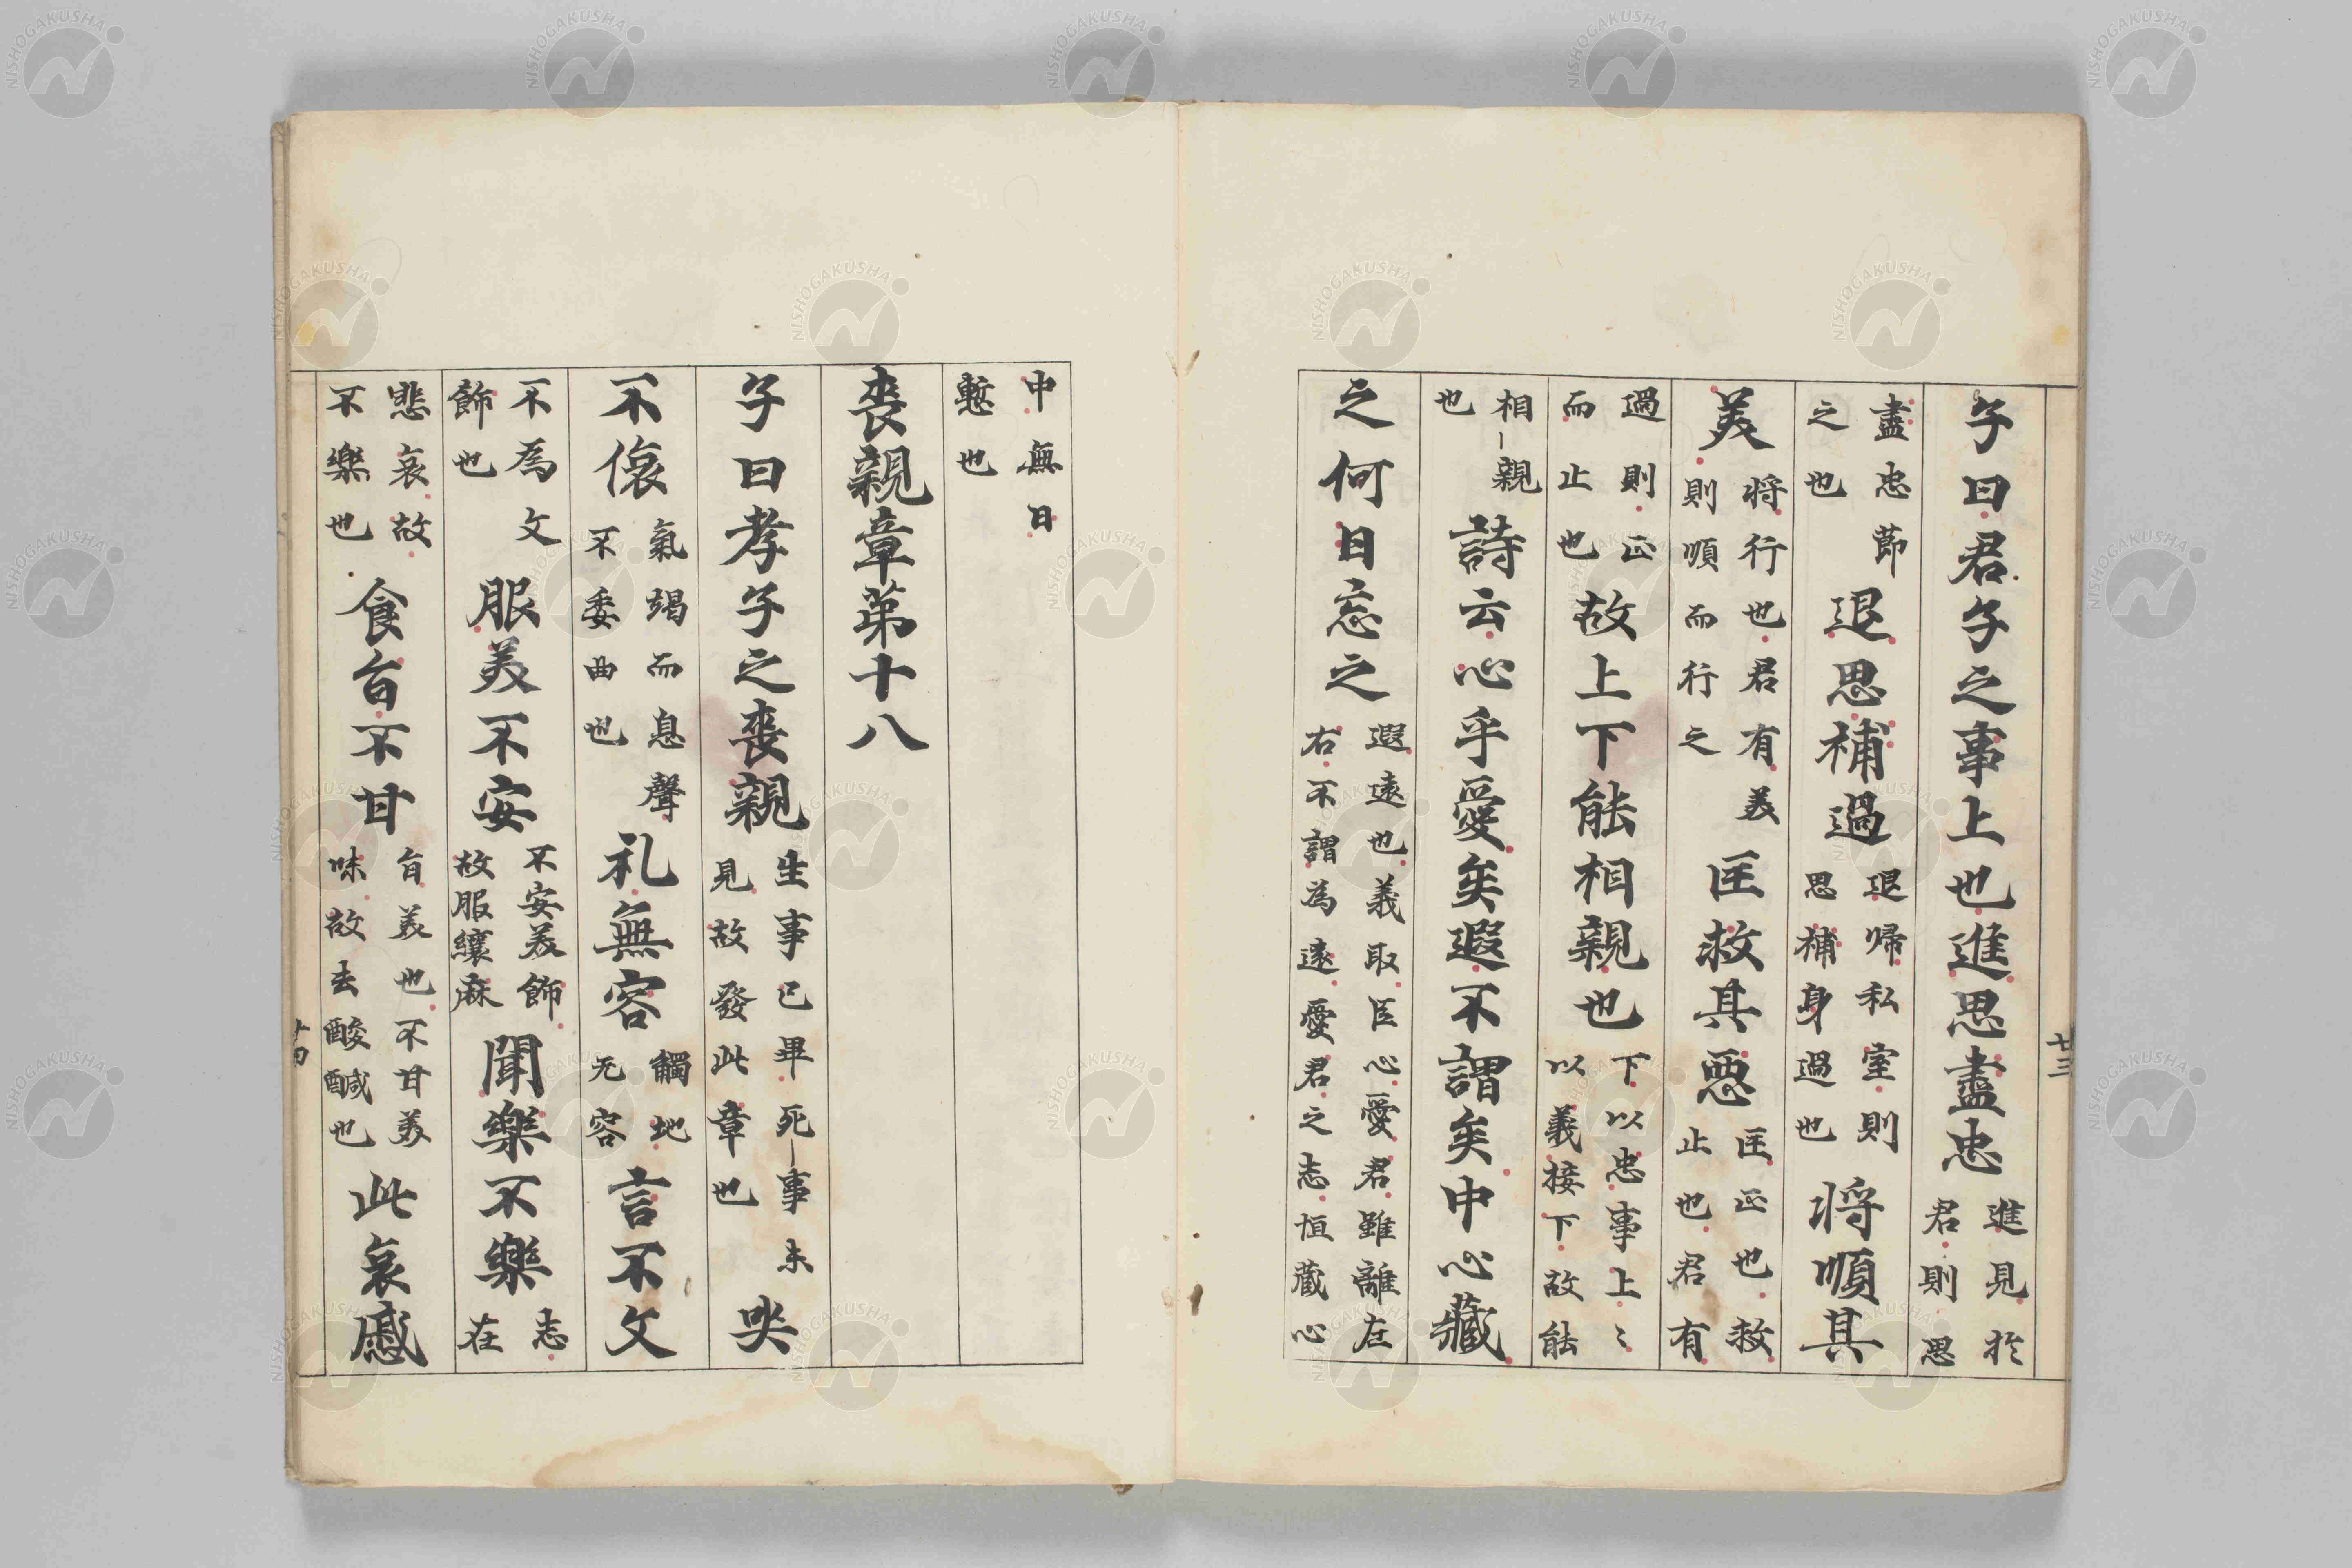 子曰君子之事上也進思盡忠進見於君則思
盡忠節之也退思補過退歸私室則思補身過也将順其
美将行也君有美則順而行之匡救其悪匡正也救止也君有
過則正而止也故上下能相親也下以忠事上〻以義接下故能
相親也詩云心乎愛矣遐不謂矣中心藏
之何日忘之遐遠也義取臣心愛君雖離左右不謂為遠愛君之志恒蔵心
中無日慙也
喪親章第十八
子曰孝子之喪親生事已畢死事未見故發此章也哭
不偯氣竭而息聲不委曲也礼無容觸地无容言不文
不為文飾也服美不安不安美飾故服纕麻聞樂不樂志在
悲哀故不樂也食旨不甘旨美也不甘美味故去酸醎也此哀慼
廿三
廿四
NISHOGAKUSHA